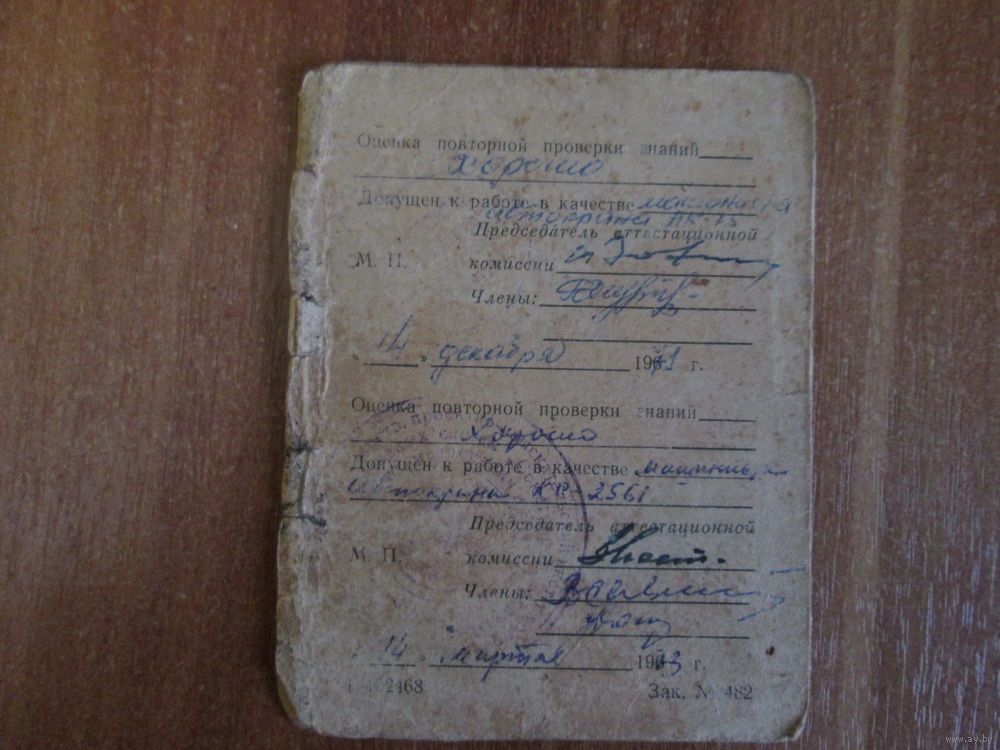 Оценка повторной проверки знаний
хорошо
Допущен к работе в качестве машиниста
автокрана АК-75
Председатель аттестационной
М. П. комиссии
Члены:
14 декабря 1971 г.
Оценка повторной проверки знаний
Хорошо
Допущен к работе в качестве машиниста
автокрана КР-2561
Председатель аттестационной
М. П. комиссии
Члены:
14 марта 1973 г.
2468 Зак. № 482
www.ay.by